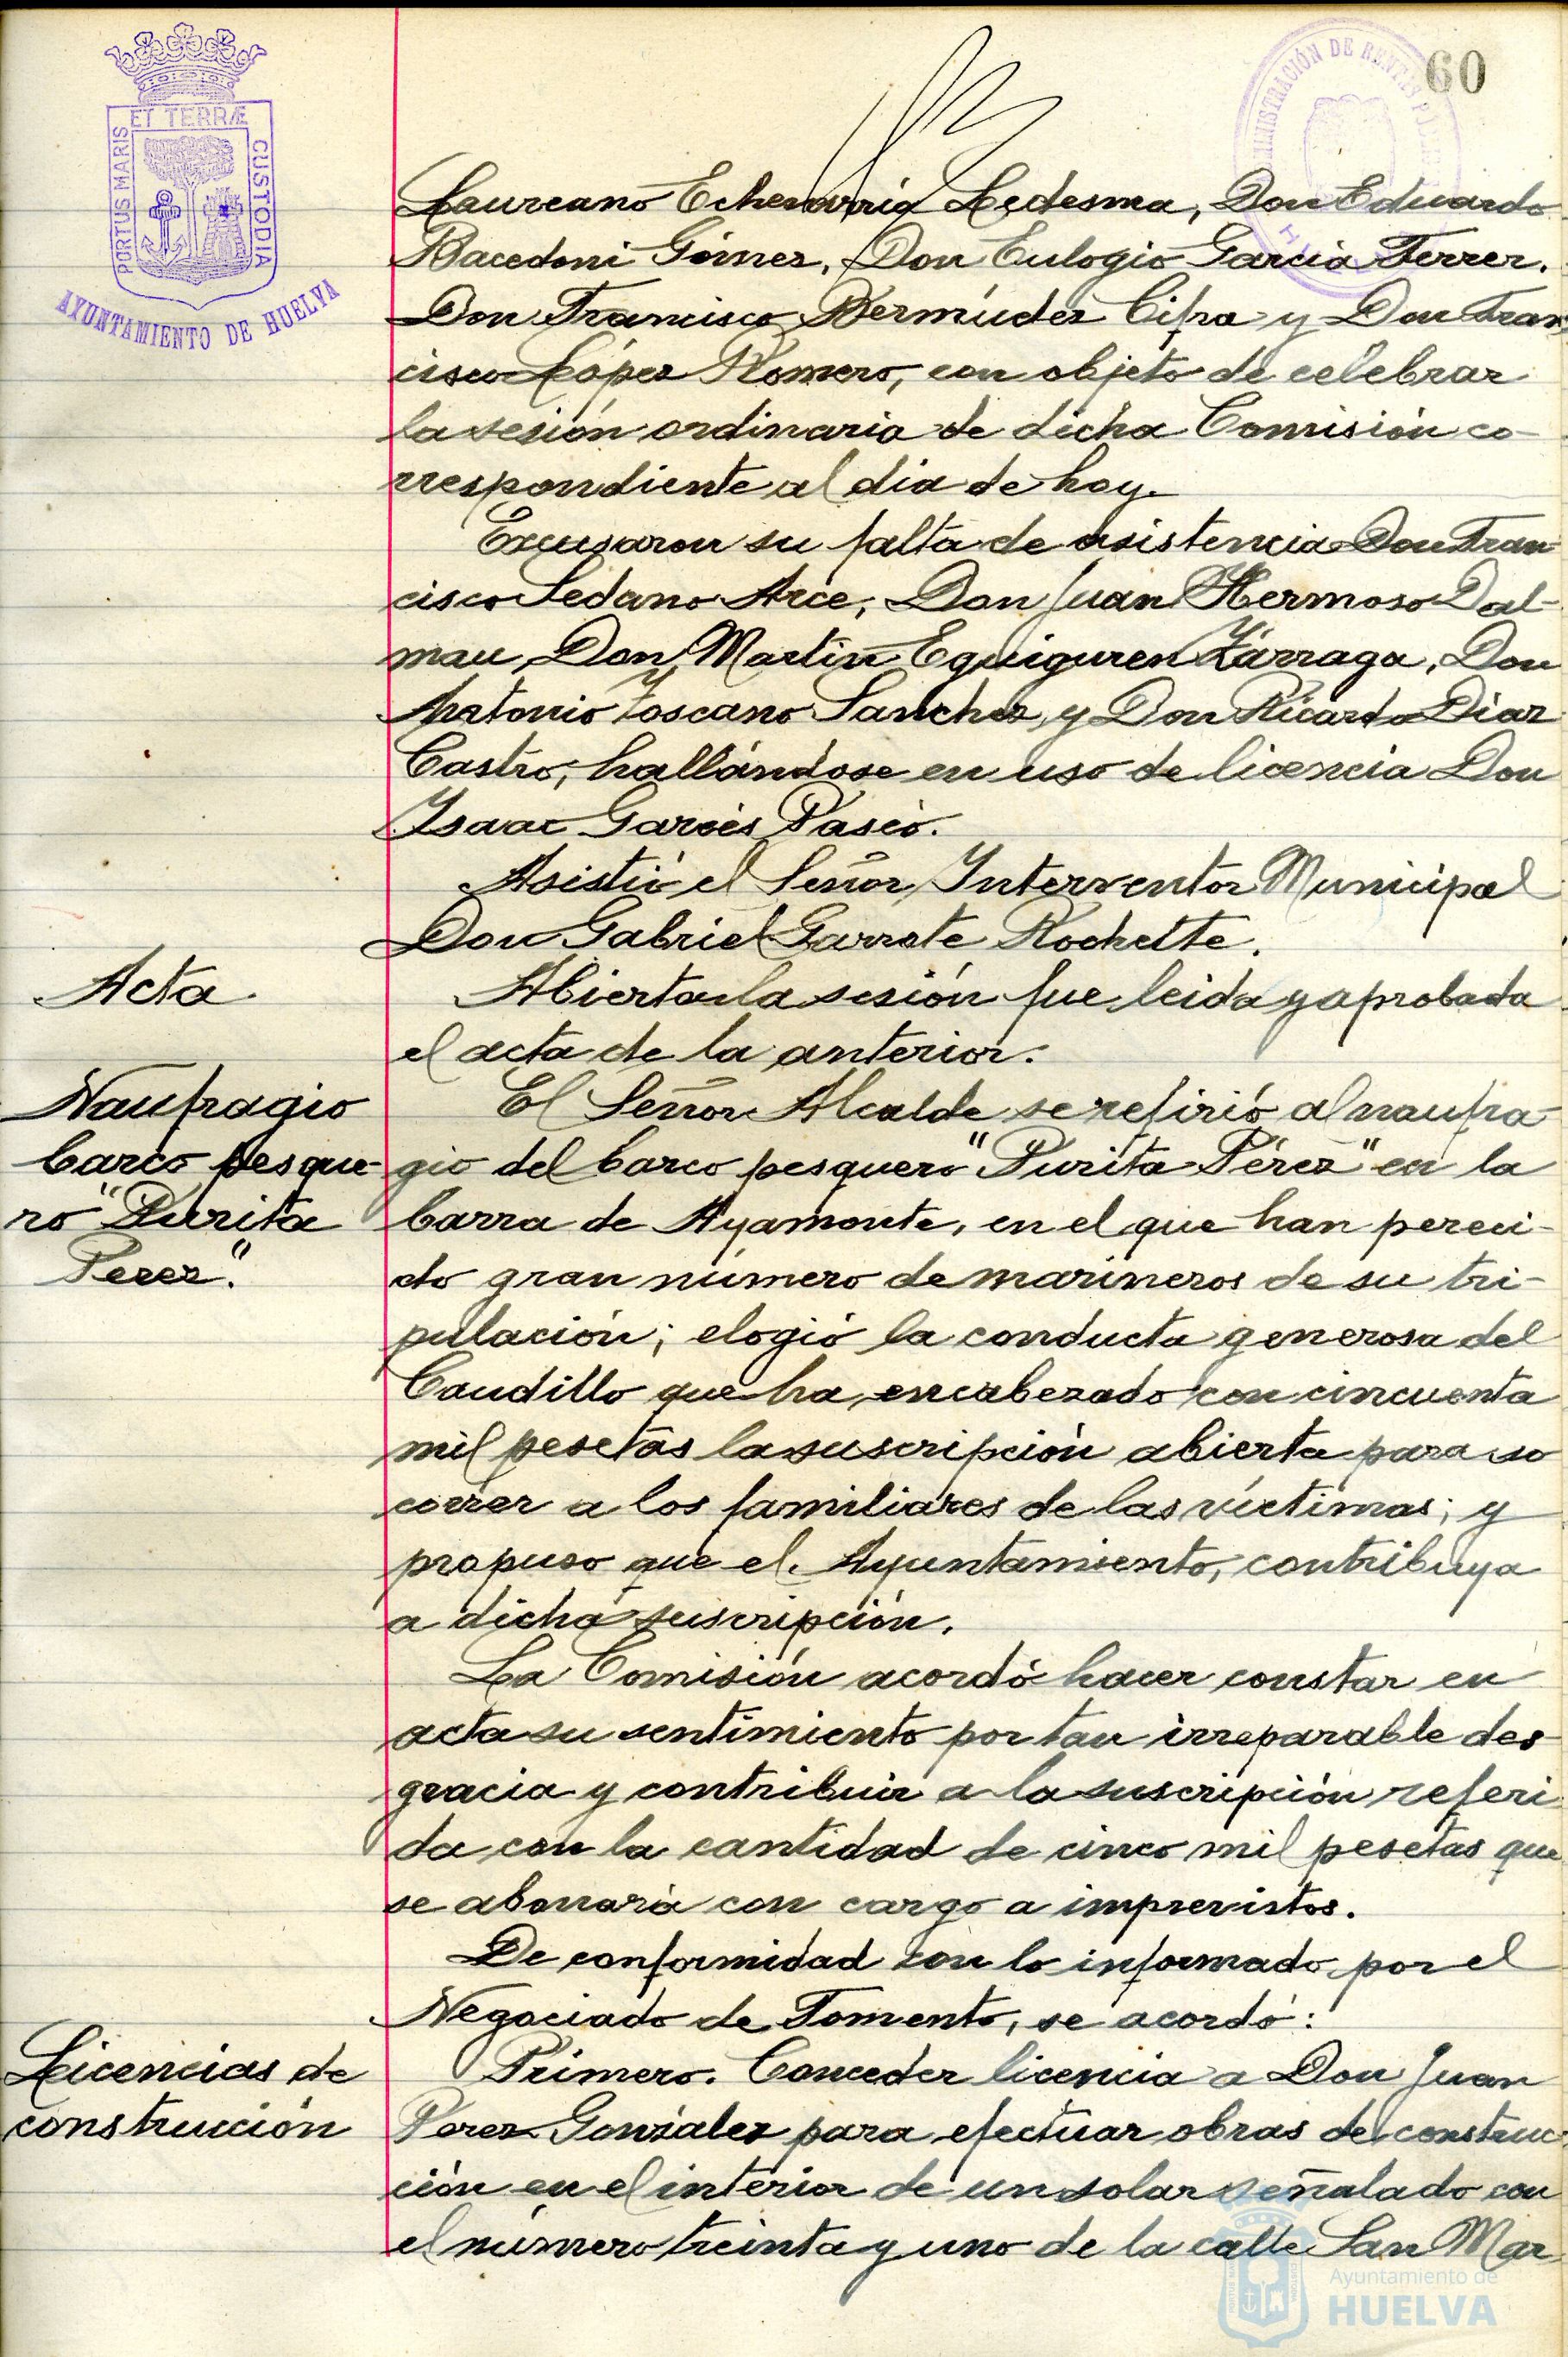 60
ET TERRÆ
PORTUS MARIS
CUSTODIA
AYUNTAMIENTO DE HUELVA
ADMINISTRACIÓN DE RENTAS
Laureano Echevarria Ledesma, Don Eduardo
Bacedoni Gómez, Don Eulogio Garcia Ferrer,
Don Francisco Bermúdez Cifra y Don Fran
cisco López Romero, con objeto de celebrar
la sesión ordinaria de dicha Comisión co-
rrespondiente al dia de hoy.
Excusaron su falta de asistencia Don Fran
cisco Sedano Arce, Don Juan Hermoso Dal-
mau, Don Martin Eguiguren Zárraga, Don
Antonio Toscano Sanchez, y Don Ricardo Diaz
Castro, hallándose en uso de licencia Don
Ysaac Garcés Paseo.
Asistió el Señor Ynterventor Municipal
Don Gabriel Garrote Rochette.
Acta.
Abierta la sesión fue leida y aprobada
el acta de la anterior.
Naufragio
barco pesque-
ro "Purita
Perez".
El Señor Alcalde se refirió al naufra-
gio del barco pesquero "Purita Pérez" en la
barra de Ayamonte, en el que han pereci-
do gran número de marineros de su tri-
pulación; elogió la conducta generosa del
Caudillo que ha encabezado con cincuenta
mil pesetas la suscripción abierta para so
correr a los familiares de las víctimas; y
propuso que el Ayuntamiento, contribuya
a dicha suscripción.
La Comisión acordó hacer constar en
acta su sentimiento por tan irreparable des-
gracia y contribuir a la suscripción referi-
da con la cantidad de cinco mil pesetas que
se abonará con cargo a imprevistos.
De conformidad con lo informado por el
Negociado de Fomento, se acordó:
Licencias de
construcción
Primero. Conceder licencia a Don Juan
Perez González para efectuar obras de construc-
ción en el interior de un solar señalado con
el número treinta y uno de la calle San Mar
Ayuntamiento de
HUELVA